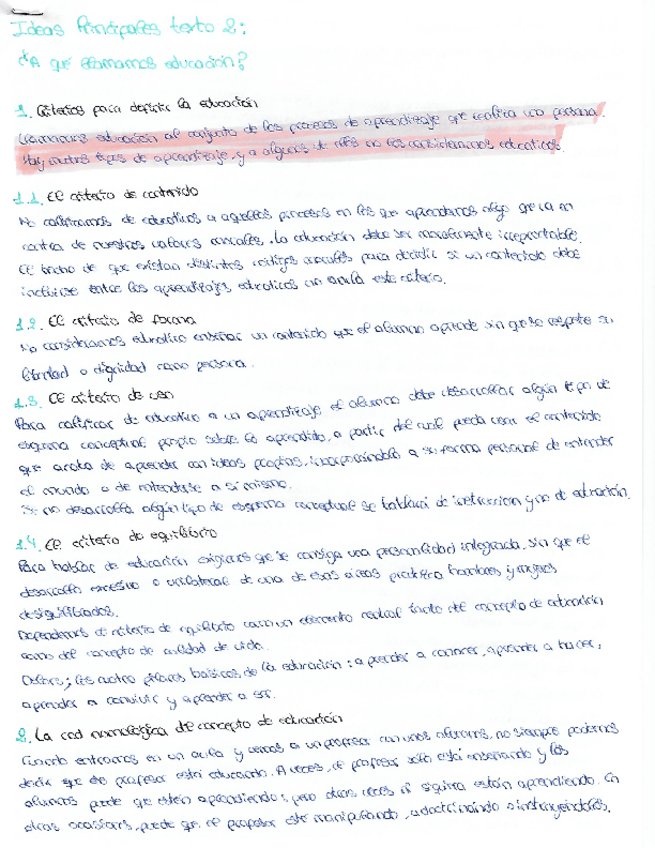 Ideas Principales texto 2:
¿A qué llamamos educación?
1. Criterios para definir la educación
Llamamos educación al conjunto de los procesos de aprendizaje que realiza una persona.
Hay muchos tipos de aprendizaje, y a algunos de ellos no los consideramos educativos.
1.1. El criterio de contenido
No calificamos de educativos a aquellos procesos en los que aprendemos algo que va en
contra de nuestros valores morales. La educación debe ser moralmente irreprochable.
El hecho de que existan distintos códigos morales para decidir si un contenido debe
incluirse entre los aprendizajes educativos no anula este criterio.
1.2. El criterio de forma
No consideramos educativo enseñar un contenido que el alumno aprende sin que se respete su
libertad o dignidad como persona.
1.3. El criterio de uso
Para calificar de educativo a un aprendizaje el alumno debe desarrollar algún tipo de
esquema conceptual propio sobre lo aprendido, a partir del cual pueda usar el contenido
que acaba de aprender con ideas propias, incorporándolo a su forma personal de entender
el mundo o de entenderse a sí mismo.
Si no desarrolla algún tipo de esquema conceptual se hablará de instrucción y no de educación.
1.4. El criterio de equilibrio
Para hablar de educación exigimos que se consiga una personalidad integrada, sin que el
desarrollo excesivo o unilateral de una de esas áreas produzca hombres y mujeres
desequilibrados.
el criterio de equilibrio como un elemento tanto del concepto de educación
como del concepto de calidad de vida.
Delors; los cuatro pilares básicos de la educación: aprender a conocer, aprender a hacer,
aprender a convivir y aprender a ser.
2. La red nomológica del concepto de educación
Cuando entramos en un aula y vemos a un profesor con unos alumnos, no siempre podemos
decir que ese profesor está educando. A veces, el profesor sólo está enseñando y los
alumnos puede que estén aprendiendo; pero otras veces ni siquiera están aprendiendo. En
otras ocasiones, puede que el profesor esté manipulando, adoctrinando o instruyéndolos.